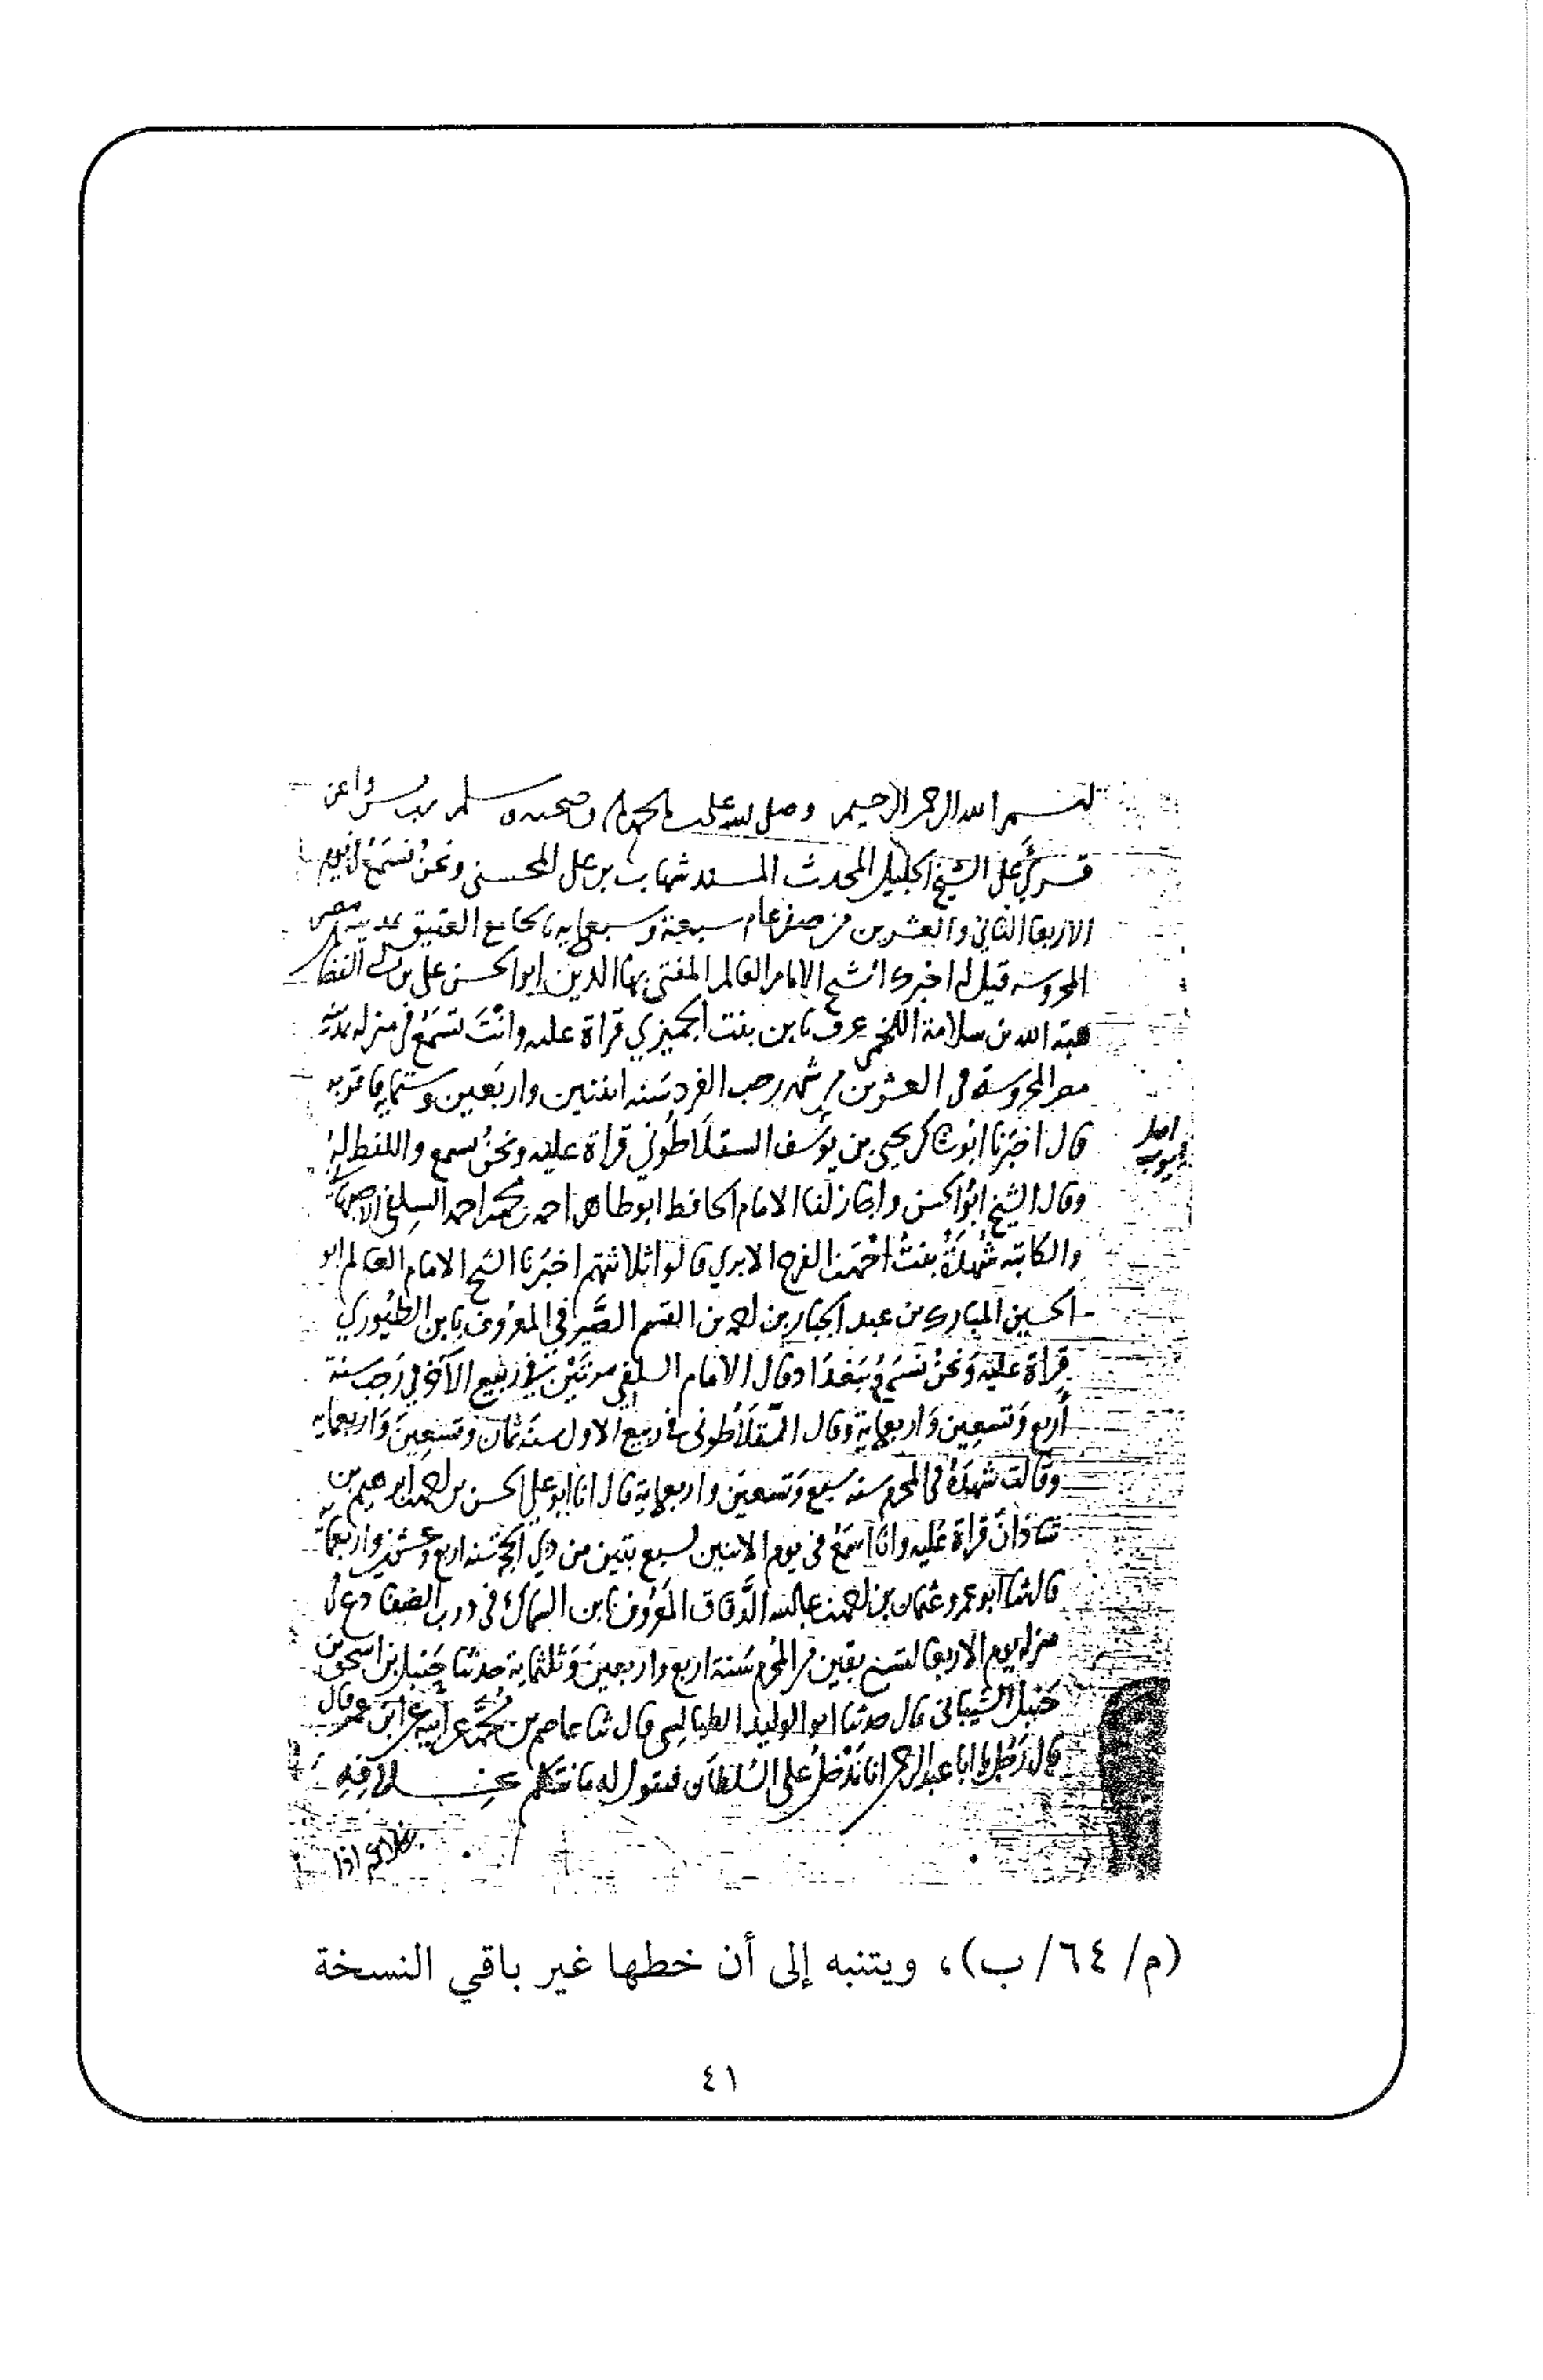 بسم الله الرحمن الرحيم وصلى الله على محمد وصحبه وسلم رب يسر واعن
قرئ على الشيخ الجليل المحدث المسند شهاب بن على المحسنى ونحن نسمع يوم
الاربعا الثاني والعشرين من صفر عام سبعة وسبعمايه بالجامع العتيق بمدينة مصر
المحروسه قيل له اخبرك الشيخ الامام العالم المفتى بها الدين ابو الحسن على بن الفضائل
هبة الله بن سلامة اللخمى عرف بابن بنت الجميزي قراة عليه وانت تسمع فى منزله بمدينة
مصر المحروسة فى العشرين من شهر رجب الفرد سنه اثنتين واربعين وستمايه فاقر به
قال اخبرنا ابو شاكر يحيى بن يوسف السقلاطوني قراة عليه ونحن نسمع واللفظ له
وقال الشيخ ابو الحسن واجاز لنا الامام الحافظ ابو طاهر احمد بن محمد احمد السلفى الاصبهانى
والكاتبه شهدة بنت احمد بن الفرج الابري قالوا ثلاثتهم اخبرنا الشيخ الامام العالم ابو
الحسين المبارك بن عبد الجبار بن احمد بن القسم الصيرفي المعروف بابن الطيوري
قراة عليه ونحن نسمع ببغداد قال الامام السلفى مرتين في ربيع الآخر في رجب سنة
أربع وتسعين واربعماية وقال السقلاطونى في ربيع الاول سنة ثمان وتسعين واربعمايه
وقالت شهدة فى المحرم سنه سبع وتسعين واربعماية قال انا ابو على الحسن بن احمد بن ابرهيم بن
شاذان قراة عليه وانا اسمع فى يوم الاثنين لسبع بقين من ذي الحجة سنه اربع وعشرين واربعماية
قال ثنا ابو عمرو عثمان بن احمد بن عبد الله الدقاق المعروف بابن السماك فى درب الضفادع فى
منزله يوم الاربعا لتسع بقين من المحرم سنة اربع واربعين وثلثماية حدثنا حنبل بن اسحق بن
حنبل الشيبانى قال حدثنا ابو الوليد الطيالسى قال ثنا عاصم بن محمد عن أبيه عن ابن عمر قال
قال رجل يا ابا عبد الرحمن انا ندخل على السلطان فنقول له ما نتكلم بخلافه
اذا
اصل
(م/ ٦٤/ ب)، ويتنبه إلى أن خطها غير باقي النسخة
٤١